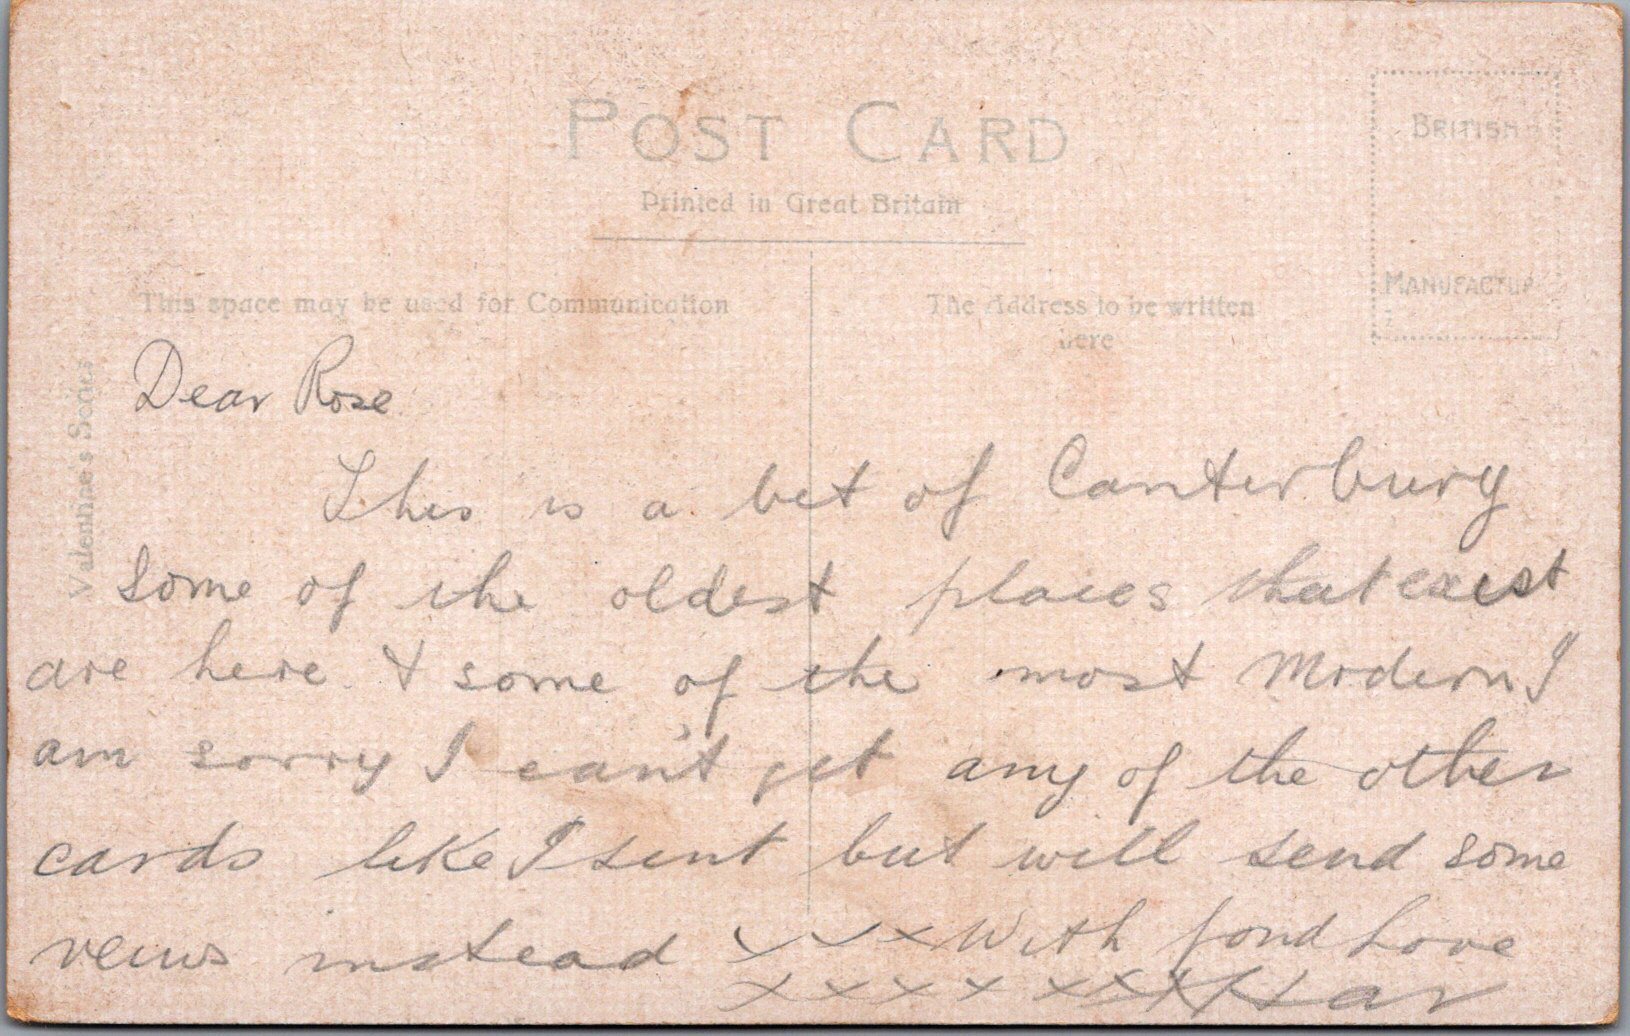 POST CARD
Printed in Great Britain
BRITISH
MANUFACTUR
This space may be used for Communication
The Address to be written
here
Valentine's Series
Dear Rose
This is a bit of Canterbury
some of the oldest places that exist
are here & some of the most Modern I
am sorry I can't get any of the other
cards like I sent but will send some
veiws instead x x x With fond Love
x x x x x x x Har